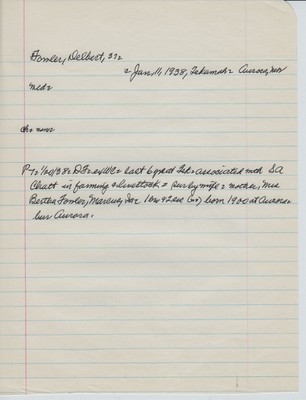 Fowler, Delbert, 37=
= Jan, 11, 1938, Tekamah= Aurora, Nebr
Med=
ch= none
P T= 1/20/38= D F= ex WC= last 6 yrs at Tek= associated with SA
Chatt in farming & livestock = sur by wife = mother, Mrs
Bertha Fowler, 1 bro & 2 sis born 1900 at Aurora=
bur Aurora.